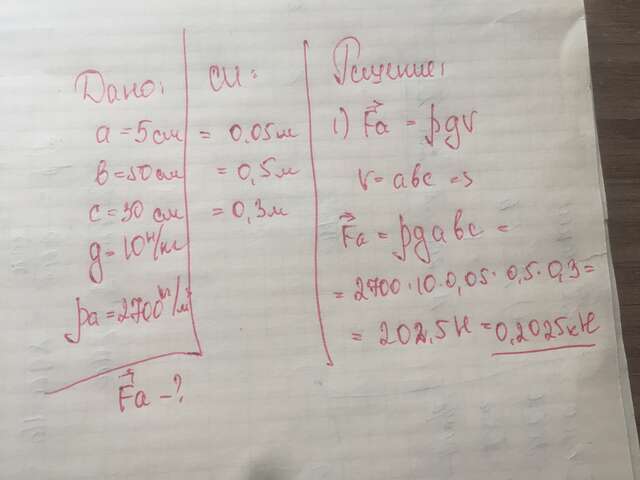 Дано:
a = 5 см
b = 50 см
c = 30 см
g = 10 Н/кг
ρа = 2700 кг/м³
Fа - ?
СИ:
= 0,05 м
= 0,5 м
= 0,3 м
Решение:
1) Fа = ρgV
V = abc =>
Fа = ρgabc =
= 2700·10·0,05·0,5·0,3 =
= 202,5 Н = 0,2025 кН